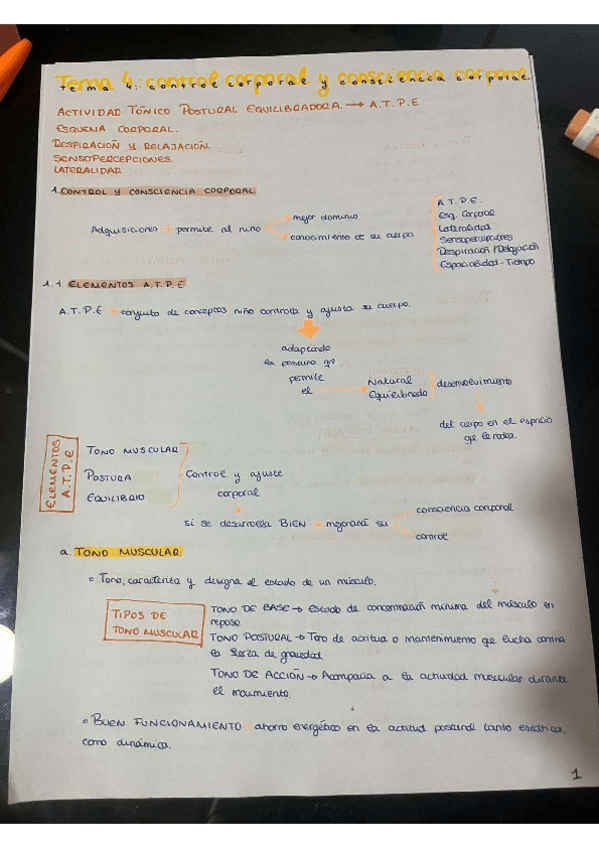 Tema 4: control corporal y consciencia corporal.
ACTIVIDAD TÓNICO POSTURAL EQUILIBRADORA. → A.T.P.E
ESQUEMA CORPORAL.
RESPIRACIÓN Y RELAJACIÓN.
SENSOPERCEPCIONES.
LATERALIDAD
1. CONTROL Y CONSCIENCIA CORPORAL
Adquisiciones → permite al niño
mejor dominio
conocimiento de su cuerpo
A.T.P.E.
Esq. Corporal
Lateralidad
Sensopercepciones
Respiración/Relajación
Espacialidad-Tiempo
1.1. ELEMENTOS A.T.P.E
A.T.P.E → conjunto de conceptos niño controla y ajusta su cuerpo.
adaptando
la postura que
permite
el
Natural
Equilibrado
desenvolvimiento
del cuerpo en el espacio
que le rodea.
ELEMENTOS
A.T.P.E
TONO MUSCULAR
POSTURA
EQUILIBRIO
Control y ajuste
corporal
si se desarrolla BIEN → mejorará su
consciencia corporal
control
a. TONO MUSCULAR
Tono, caracteriza y designa el estado de un músculo.
TIPOS DE
TONO MUSCULAR
TONO DE BASE → Estado de concentración mínima del músculo en
reposo
TONO POSTURAL → Tono de actitud o mantenimiento que lucha contra
la fuerza de gravedad
TONO DE ACCIÓN → Acompaña a la actividad muscular durante
el movimiento.
BUEN FUNCIONAMIENTO → ahorro energético en la actitud postural tanto estática,
como dinámica.
1